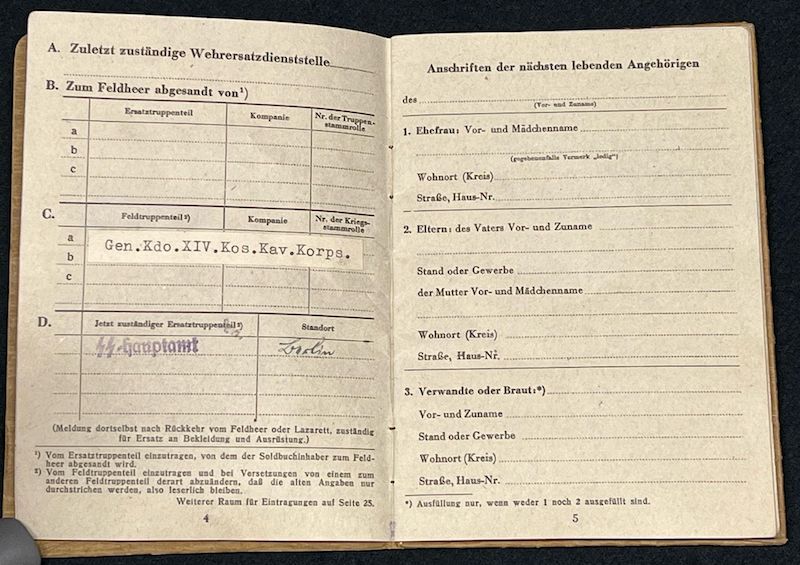 A. Zuletzt zuständige Wehrersatzdienststelle
B. Zum Feldheer abgesandt von¹)
Ersatztruppenteil
Kompanie
Nr. der Truppen-
stammrolle
a
b
c
C.
Feldtruppenteil²)
Kompanie
Nr. der Kriegs-
stammrolle
a
Gen.Kdo.XIV.Kos.Kav.Korps.
b
c
D.
Jetzt zuständiger Ersatztruppenteil²)
Standort
SS-Hauptamt
Berlin
(Meldung dortselbst nach Rückkehr vom Feldheer oder Lazarett, zuständig
für Ersatz an Bekleidung und Ausrüstung.)
¹) Vom Ersatztruppenteil einzutragen, von dem der Soldbuchinhaber zum Feld-
heer abgesandt wird.
²) Vom Feldtruppenteil einzutragen und bei Versetzungen von einem zum
anderen Feldtruppenteil derart abzuändern, daß die alten Angaben nur
durchstrichen werden, also leserlich bleiben.
Weiterer Raum für Eintragungen auf Seite 25.
4
Anschriften der nächsten lebenden Angehörigen
des
(Vor- und Zuname)
1. Ehefrau: Vor- und Mädchenname
(gegebenenfalls Vermerk „ledig")
Wohnort (Kreis)
Straße, Haus-Nr.
2. Eltern: des Vaters Vor- und Zuname
Stand oder Gewerbe
der Mutter Vor- und Mädchenname
Wohnort (Kreis)
Straße, Haus-Nr.
3. Verwandte oder Braut:*)
Vor- und Zuname
Stand oder Gewerbe
Wohnort (Kreis)
Straße, Haus-Nr.
*) Ausfüllung nur, wenn weder 1 noch 2 ausgefüllt sind.
5